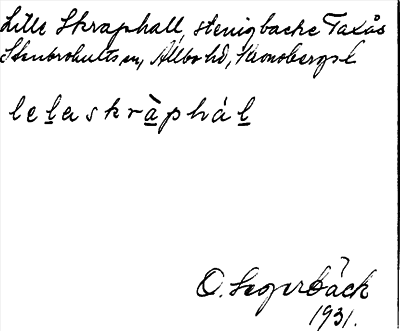 Lille Skraphäll, stenig backe Taxås
Stenbrohults sn, Allbo hd, Kronobergs l
lelaskràphál
O. Segerbäck
1931.